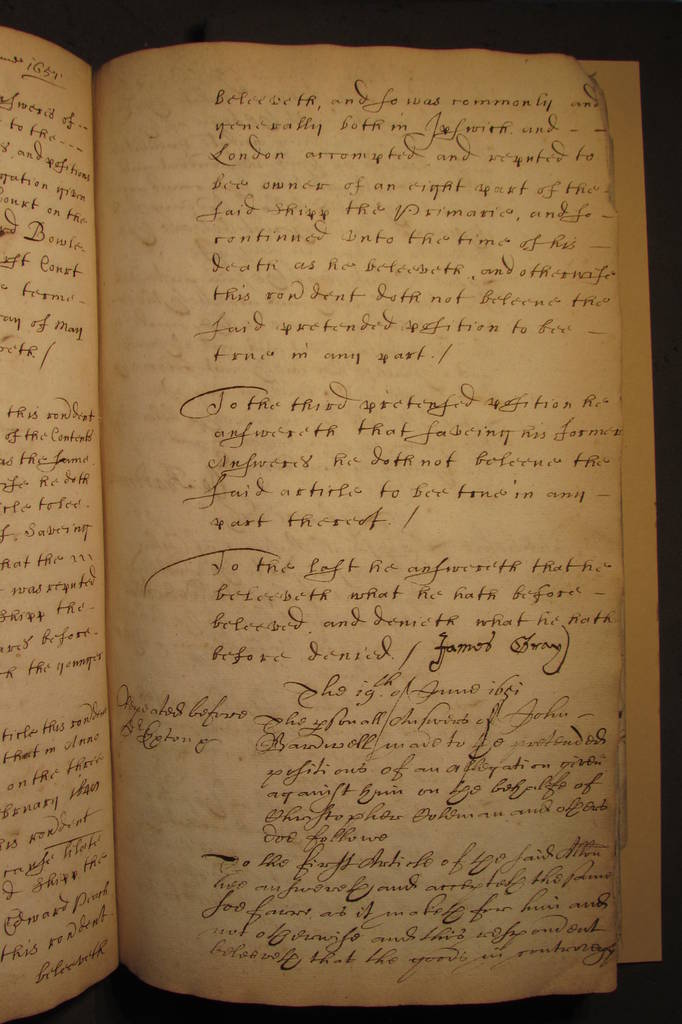 1651
answeres of
to the
s, and positions
gation given
Court on the
Bowle
Court
terme
ay of May
this rondent
of the Contents
as the same
he doth
Saveing
that the
was reputed
Shipp the
before
the younger
this rondent
that in Anno
on the three
bruary 1649
rondent
Shipp the
Edward
this rondent
beleeveth
beleeveth, and so was commonly and
generally both in Ipswich and
London accompted and reputed to
bee owner of an eight part of the
said Shipp the Primarie, and so
continued vnto the time of his
death as he beleeveth, and otherwise
this rondent doth not beleeue the
said pretended position to bee
true in any part. /
To the third pretensed position he
answereth that saveing his former
Answeres he doth not beleeue the
said article to bee true in any
part thereof. /
To the last he answereth that he
beleeveth what he hath before
beleeved, and denieth what he hath
before denied. / James Gray
The 19th of June 1651
Repeated before
Dr Exton
The psonall Answers of John
Bardwell made to the pretended
positions of an allegation given
against him on the behalfe of
Christopher Coleman and others
doe followe
To the first Article of the said Allon
hee answereth and accepteth the same
soe farre as it maketh for him and
not otherwise and this respondent
beleeveth that the goods in controversy